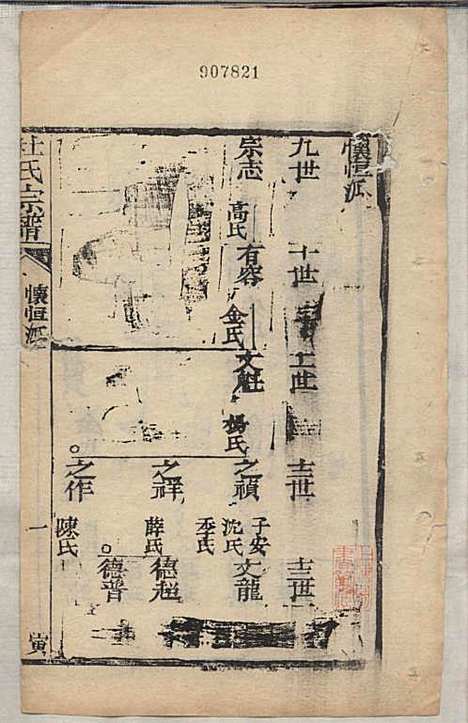 907821
懷恒派
九世 十世 十一世 十二世 十三世
宗志 高氏 有容 金氏 文魁 楊氏 之禎 子安 沈氏 李氏 文龍
之祥 薛氏 德超
德普
之作 陳氏
杜氏宗譜 懷恒派 一 寅